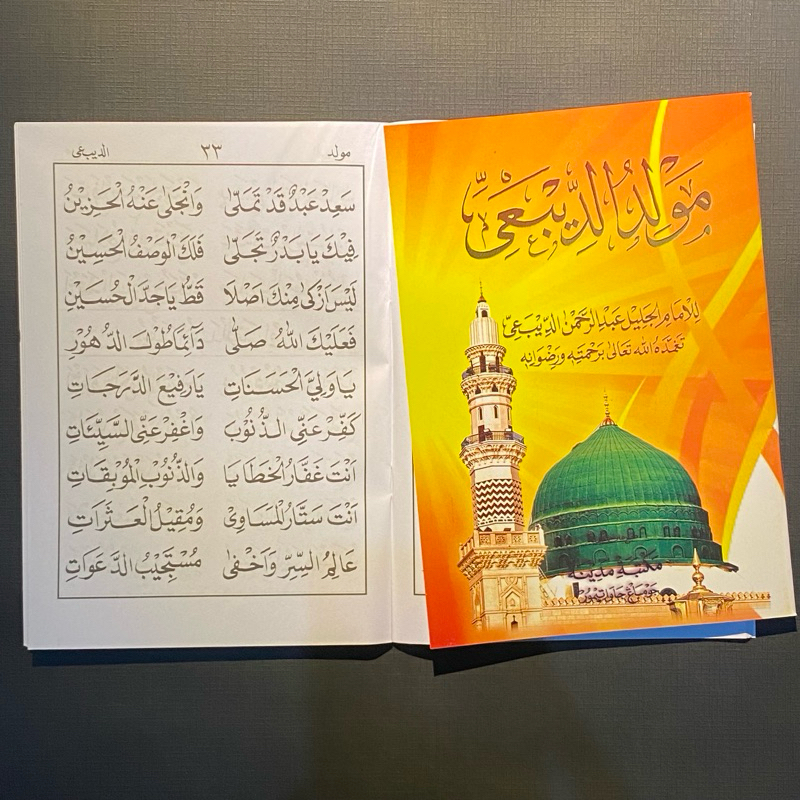 مولد ٣٣ الديبعى
سَعِدْ عَبْدٌ قَدْ تَمَلّٰى وَانْجَلٰى عَنْهُ الْحَزِيْنُ
فِيْكَ يَا بَدْرٌ تَجَلّٰى فَلَكَ الْوَصْفُ الْحَسِيْنُ
لَيْسَ اَزْكٰى مِنْكَ اَصْلًا قَطُّ يَاجَدَّ الْحُسَيْنِ
فَعَلَيْكَ اللّٰهُ صَلّٰى دَآئِمًا طُوْلَ الدُّهُوْرِ
يَا وَلِيَّ الْحَسَنَاتِ يَارَفِيْعَ الدَّرَجَاتِ
كَفِّرْ عَنِّى الذُّنُوْبَ وَاغْفِرْ عَنِّى السَّيِّئَاتِ
اَنْتَ غَفَّارُ الْخَطَايَا وَالذُّنُوْبِ الْمُوْبِقَاتِ
اَنْتَ سَتَّارُ الْمَسَاوِىْ وَمُقِيْلُ الْعَثَرَاتِ
عَالِمُ السِّرِّ وَاَخْفٰى مُسْتَجِيْبُ الدَّعَوَاتِ
مَوْلِدُ الدِّيْبَعِيِّ
لِلْاِمَامِ الْجَلِيْلِ عَبْدِ الرَّحْمٰنِ الدِّيْبَعِيِّ
تَغَمَّدَهُ اللهُ تَعَالٰى بِرَحْمَتِهِ وَرِضْوَانِهِ
مكتبة مدينة